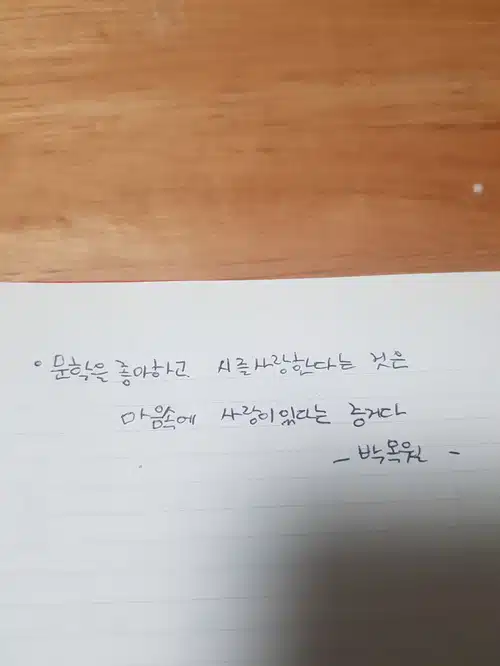 • 문학을 좋아하고 시를 사랑한다는 것은
마음속에 사랑이 있다는 증거다
- 박목월 -